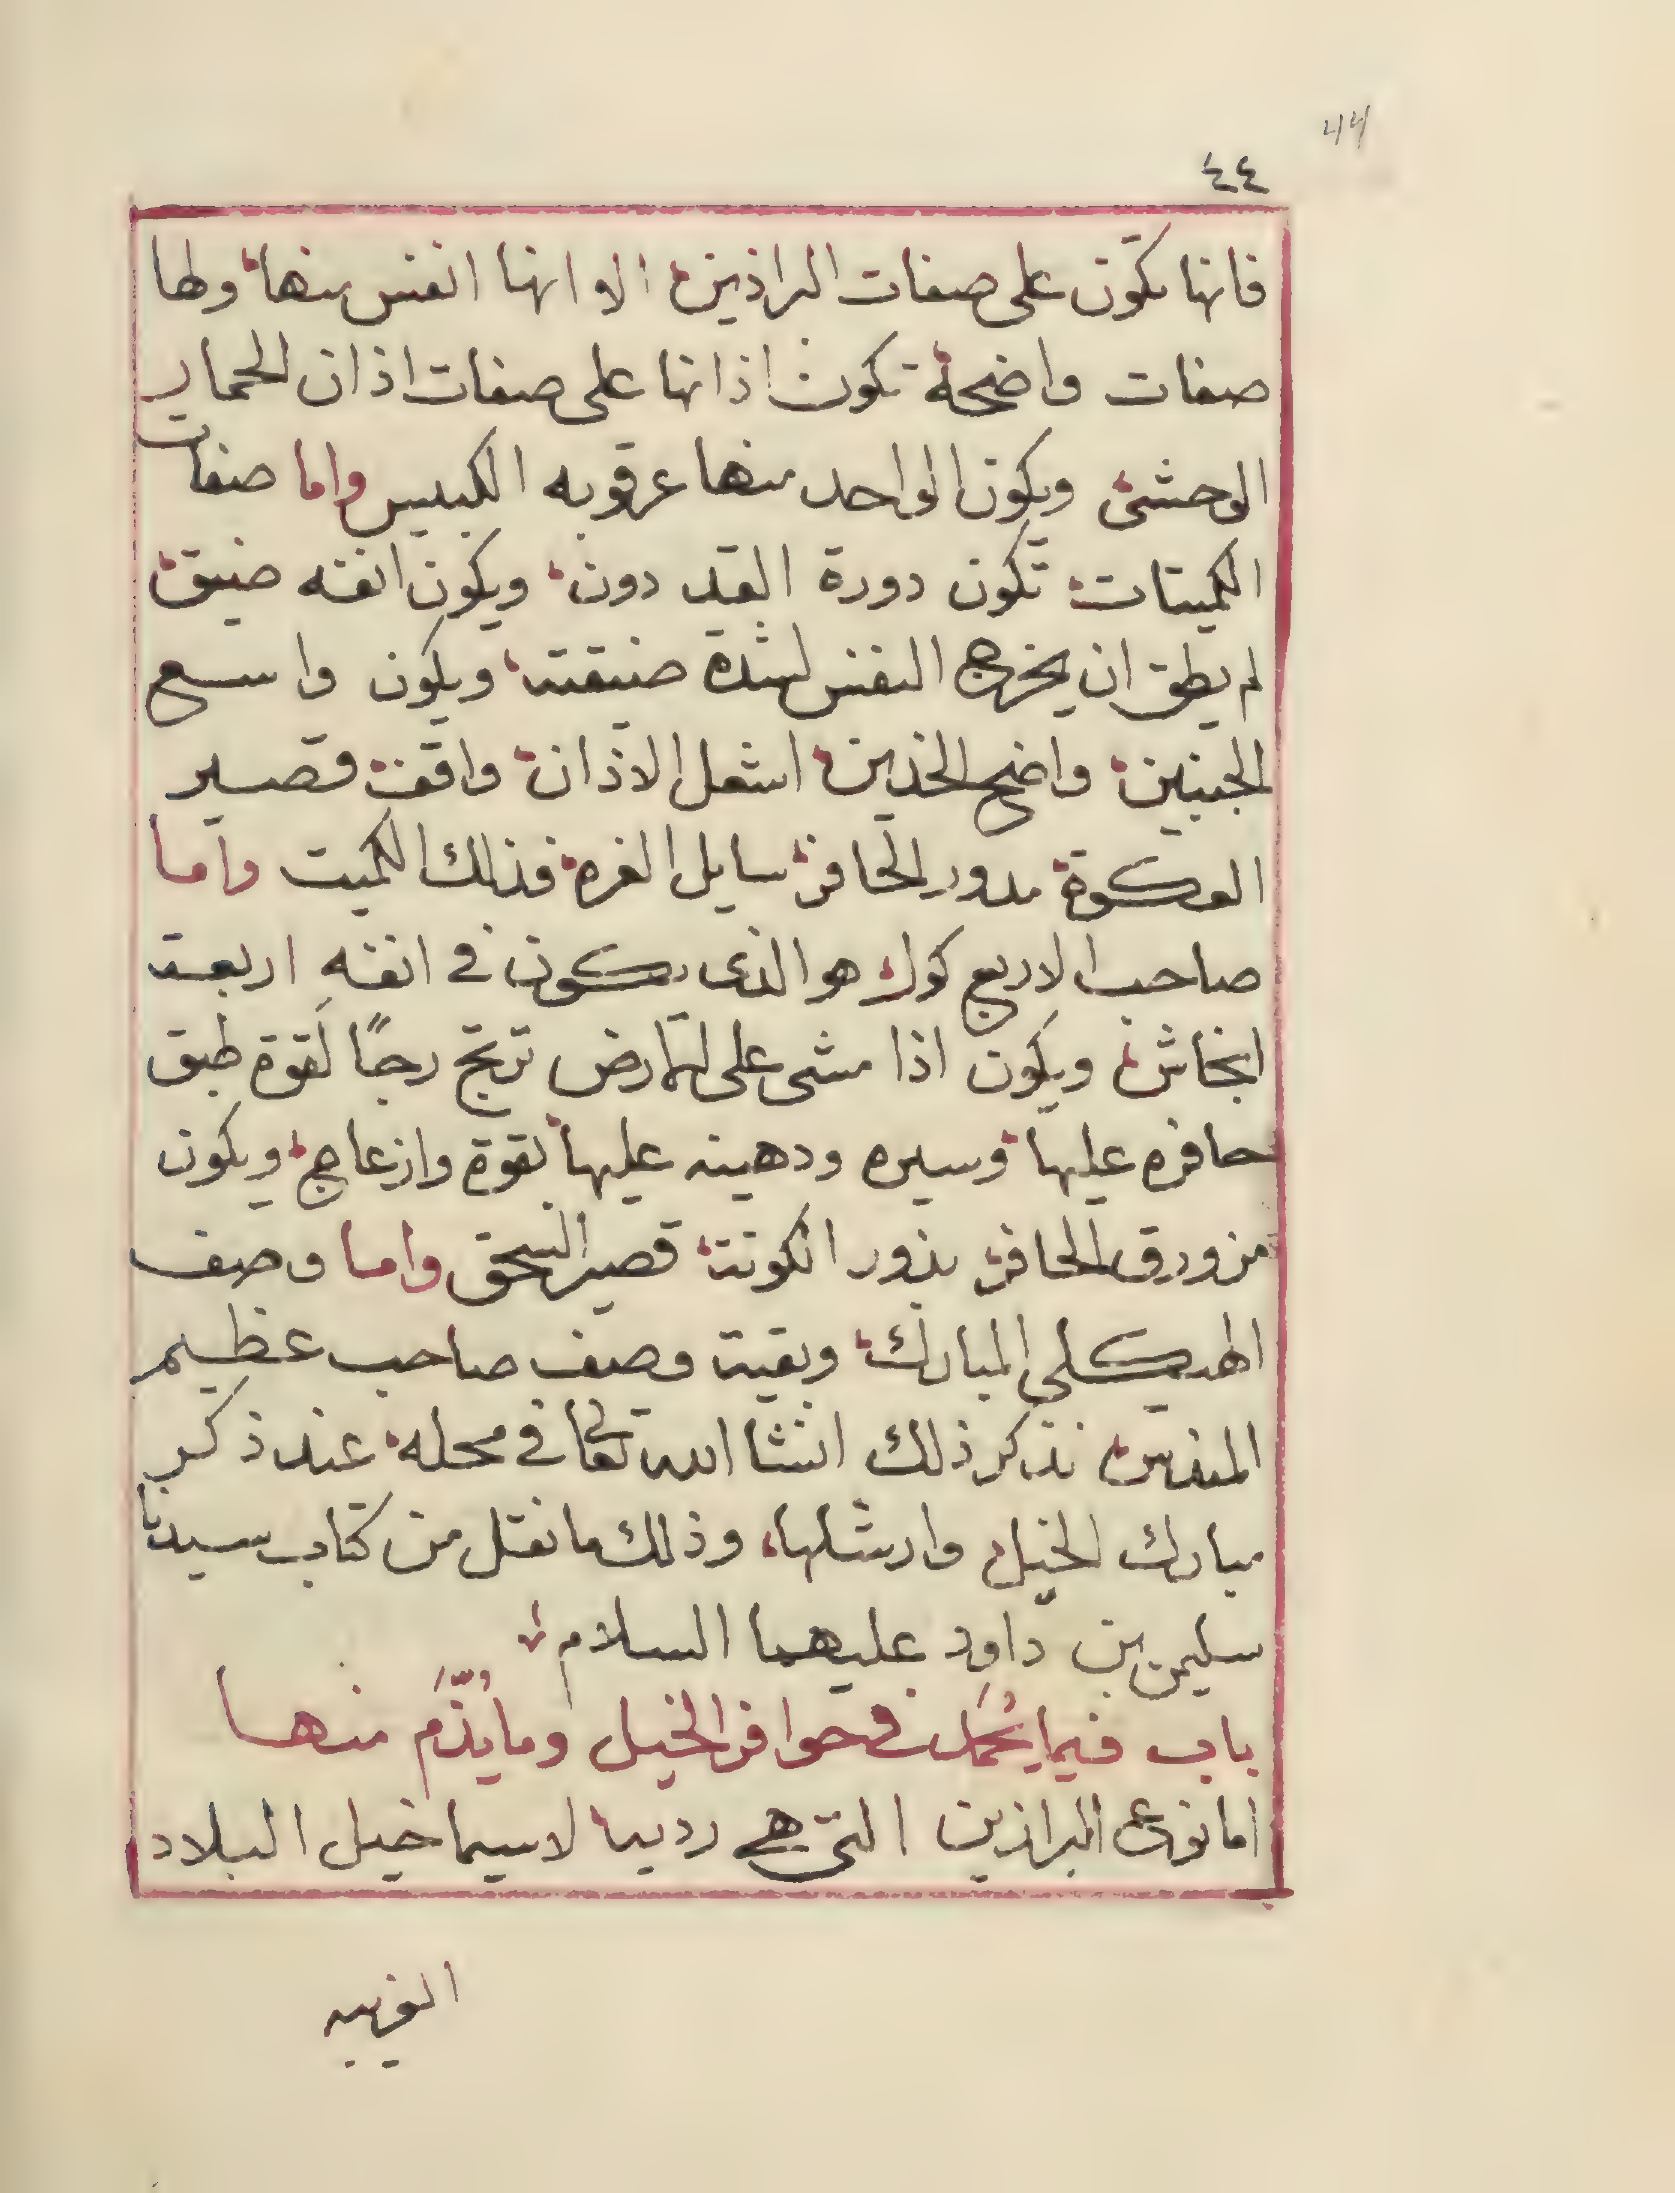 44
٤٤
فانها تكون على صفات البراذين الا وانها انفس منها ولها
صفات واضحة تكون اذانها على صفات اذان الحمار
الوحشى ويكون الواحد منها عرقوبه الكبيس واما صفات
الكميتات تكون دورة القد دون ويكون انفه ضيق
لم يطق ان يخرج النفس لشدة ضيقته ويكون واسع
الجبنين واضح الخدين اشعل الاذان واقف قصير
العكوة مدور الحافر سايل الغره فذلك الكميت واما
صاحب الاربع كوك هو الذى يكون فى انفه اربعت
انخاش ويكون اذا مشى على الارض ترتج رجًا لقوة طبق
حافره عليها وسيره ودهينه عليها بقوة وازعاج ويكون
مزورق الحافر قصير السحق واما وصف
الهيكلى المبارك وبقيت وصف صاحب عظيم
نذكر ذلك انشا الله تعالى فى محله عند ذكر
مبارك الخيل وارشلها وذلك ما نقل من كتاب سيدنا
سليمن بن داود عليهما السلام
باب فيما يُحمَد فى حوافر الخيل وما يُذَّمَ منها
اما نوع البراذين التى هى رديا لاسيما خيل البلاد
الغربيه